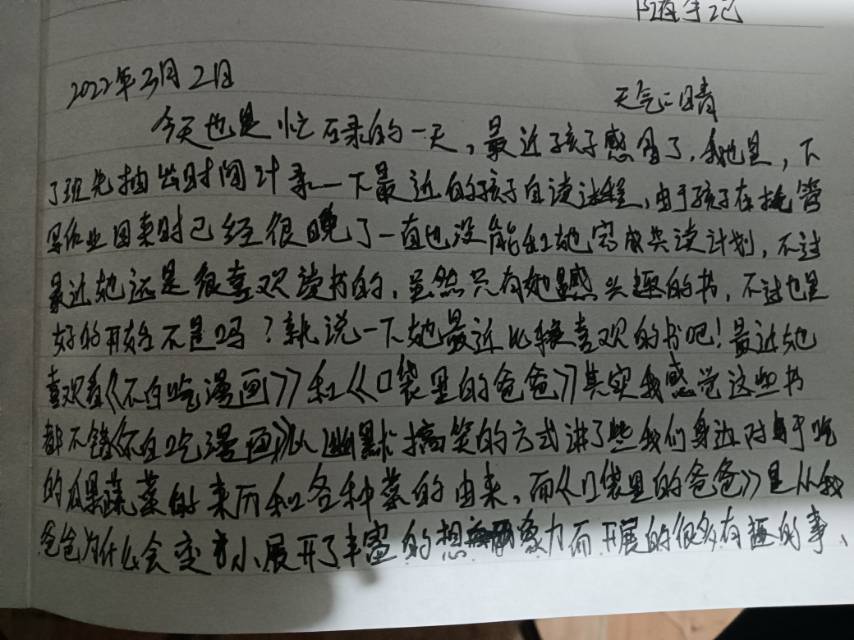 随手记
2022年3月2日 天气:晴
今天也是忙碌的一天,最近孩子感冒了,我也是,下
了班先抽出时间计录一下最近的孩子自读过程,由于孩子在托管
写作业回来时已经很晚了一直也没能和她完成共读计划,不过
最近她还是很喜欢读书的,虽然只有她感兴趣的书,不过也是
好的开始不是吗?就说一下她最近比较喜欢的书吧!最近她
喜欢看《不白吃漫画》和《口袋里的爸爸》其实我感觉这些书
都不错《不白吃漫画》以幽默搞笑的方式讲了些我们身边对于吃
的瓜果蔬菜的来历和各种菜的由来,而《口袋里的爸爸》是从我
爸爸为什么会变小展开了丰富的想象力而开展的很多有趣的事、